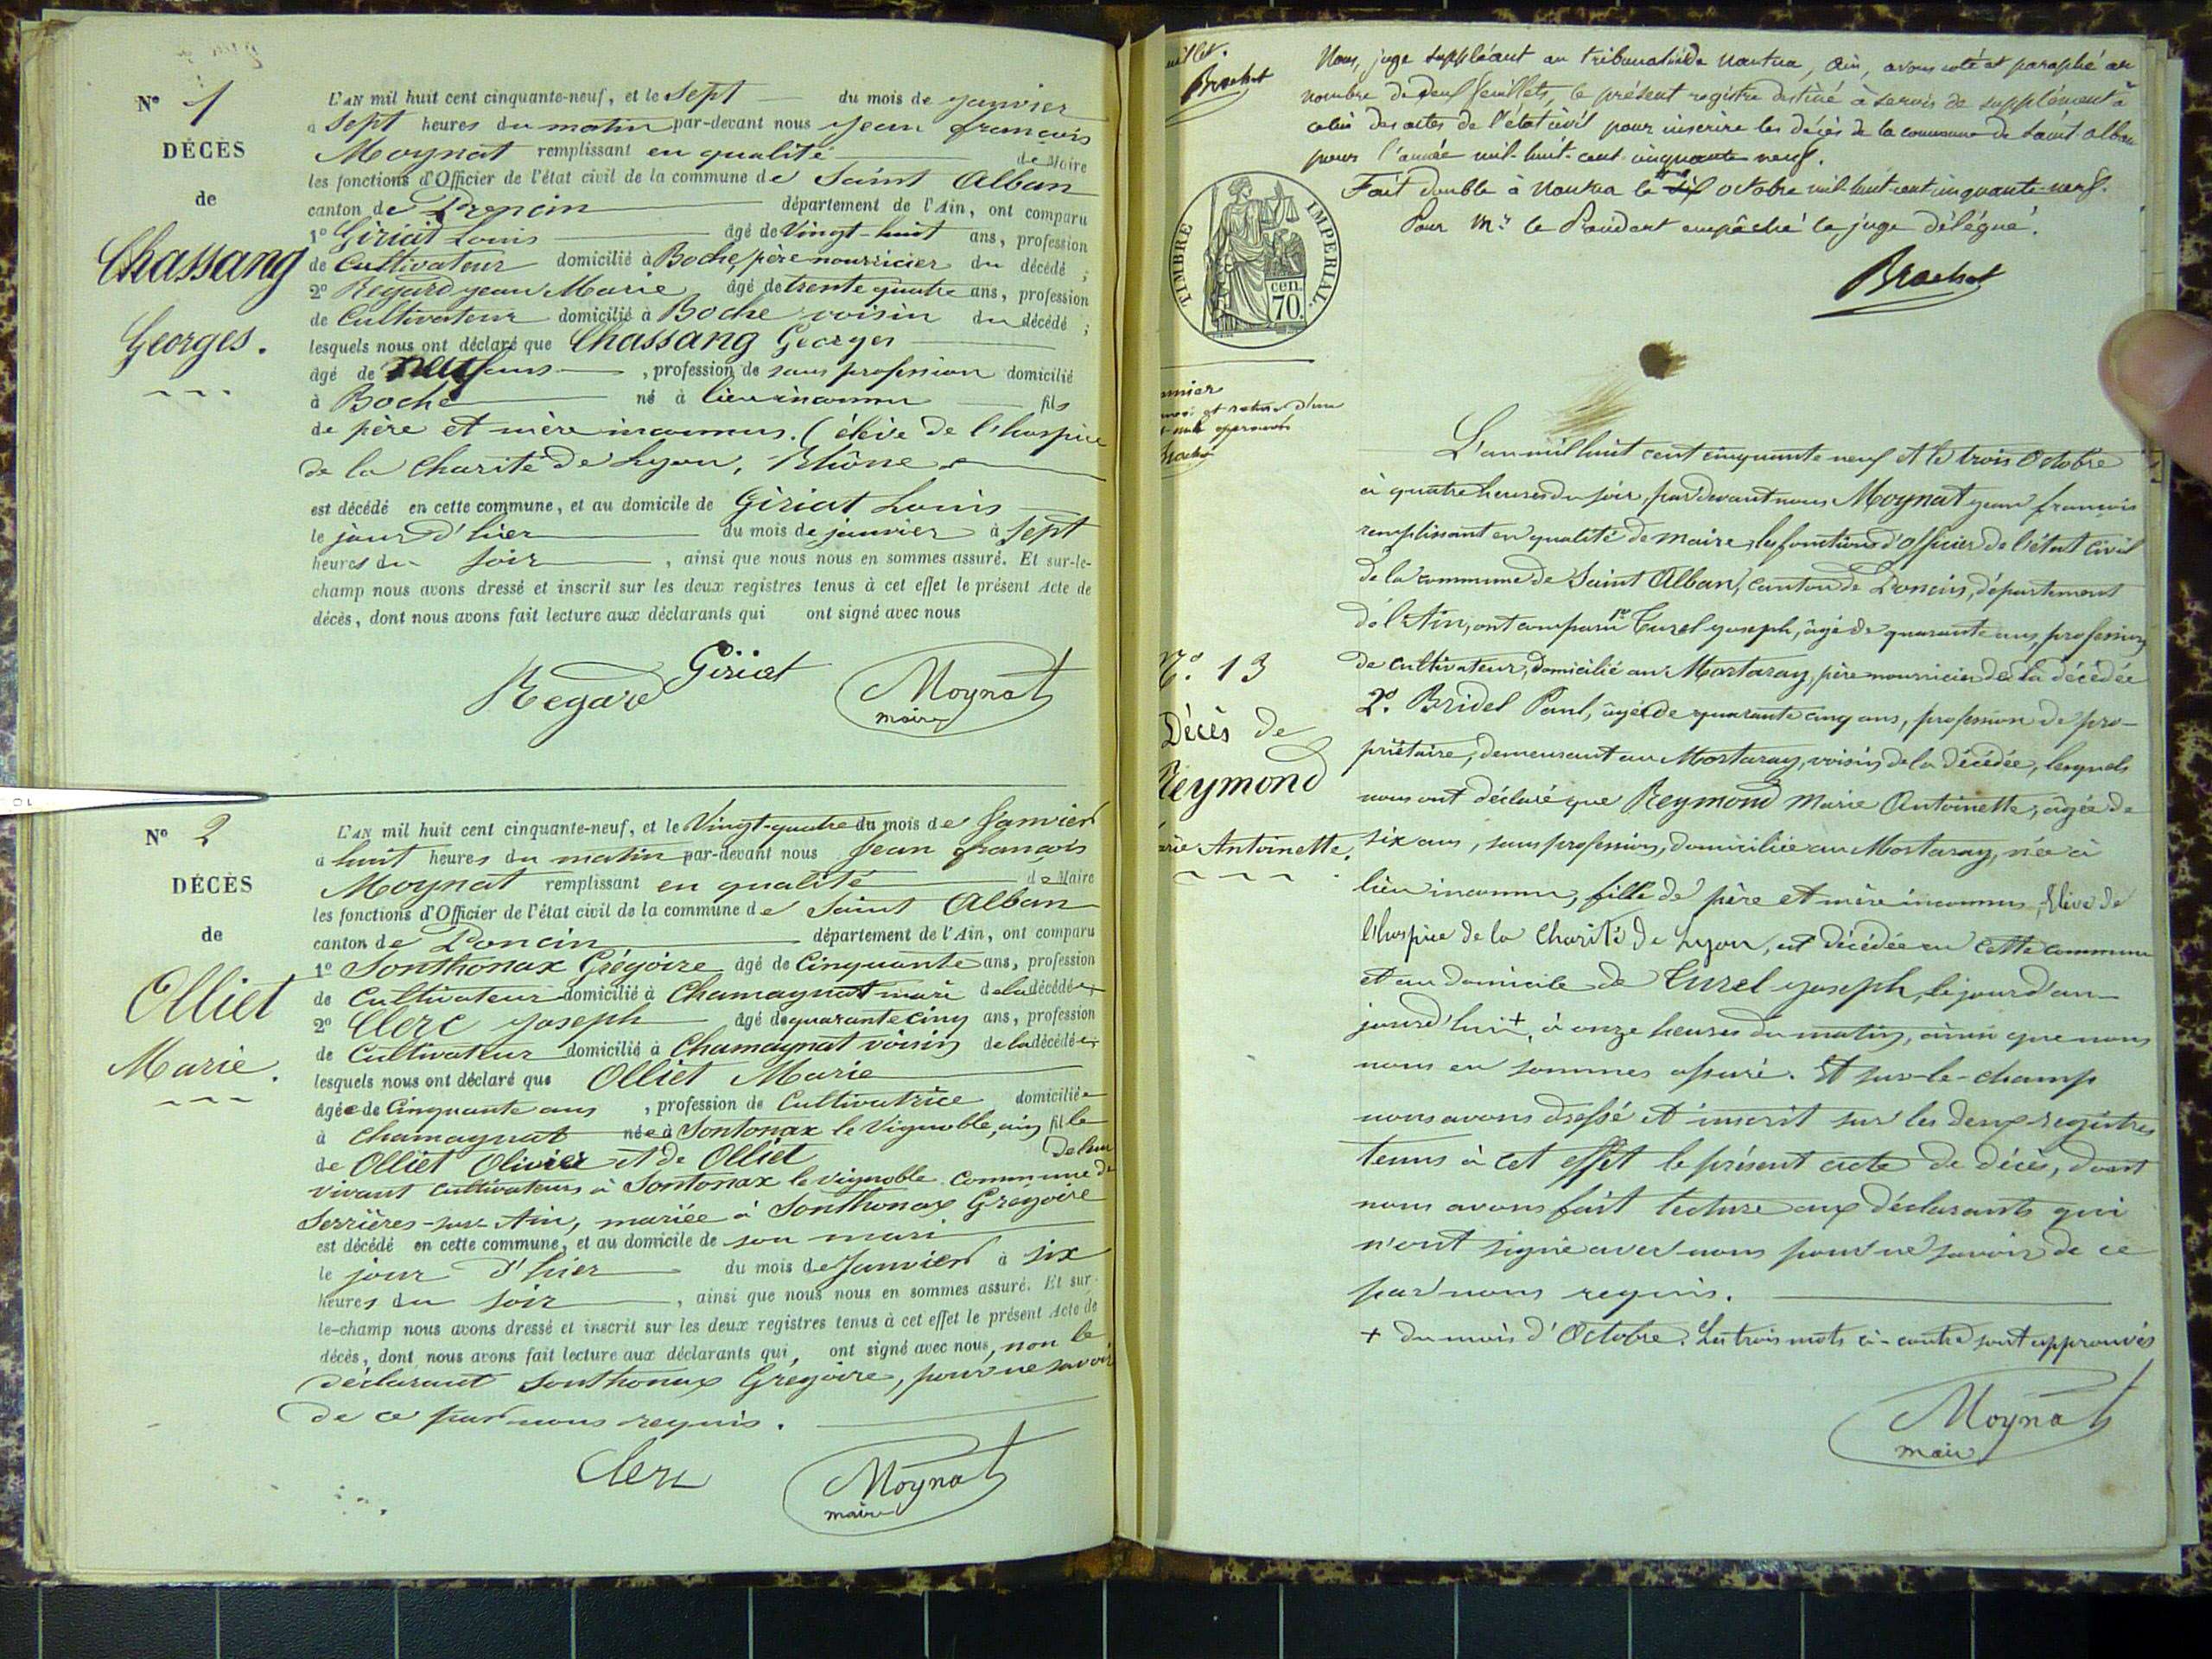 N° 1
DÉCÈS
de
Chassang
Georges.
L'AN mil huit cent cinquante-neuf, et le sept du mois de janvier
à sept heures du matin par-devant nous Jean françois
Moynat remplissant en qualité de Maire
les fonctions d'Officier de l'état civil de la commune de Saint Alban
canton de Poncin département de l'Ain, ont comparu
1° Giriat Louis âgé de Vingt-huit ans, profession
de Cultivateur domicilié à Boche, père nourricier du décédé ;
2° Regard jean Marie âgé de trente quatre ans, profession
de Cultivateur domicilié à Boche voisin du décédé ;
lesquels nous ont déclaré que Chassang Georges
âgé de neuf ans, profession de sans profession domicilié
à Boche né à lieu inconnu fils
de père et mère inconnus. (élève de l'hospice
de la Charité de Lyon, Rhône
est décédé en cette commune, et au domicile de Giriat Louis
le jour d'hier du mois de janvier à sept
heures du soir, ainsi que nous nous en sommes assuré. Et sur-le-
champ nous avons dressé et inscrit sur les deux registres tenus à cet effet le présent Acte de
décès, dont nous avons fait lecture aux déclarants qui ont signé avec nous
Regard Giriat Moynat
maire
N° 2
DÉCÈS
de
Olliet
Marie.
L'AN mil huit cent cinquante-neuf, et le Vingt-quatre du mois de Janvier
à huit heures du matin par-devant nous Jean françois
Moynat remplissant en qualité de Maire
les fonctions d'Officier de l'état civil de la commune de Saint Alban
canton de Poncin département de l'Ain, ont comparu
1° Sonthonax Grégoire âgé de Cinquante ans, profession
de Cultivateur domicilié à Chamagnat mari de la décédée
2° Clerc joseph âgé de quarante cinq ans, profession
de Cultivateur domicilié à Chamagnat voisin de la décédée
lesquels nous ont déclaré que Olliet Marie
âgée de Cinquante ans, profession de Cultivatrice domiciliée
à Chamagnat née à Sontonax le Vignoble, ain fille
de Olliet Olivier et de Olliet de leur
vivant cultivateurs à Sontonax le vignoble commune de
Serrières-sur-Ain, mariée à Sonthonax Grégoire
est décédé en cette commune, et au domicile de son mari
le jour d'hier du mois de Janvier à six
heures du soir, ainsi que nous nous en sommes assuré. Et sur-
le-champ nous avons dressé et inscrit sur les deux registres tenus à cet effet le présent Acte de
décès, dont nous avons fait lecture aux déclarants qui, ont signé avec nous, non le
déclarant Sonthonax Grégoire, pour ne savoir
de ce par nous requis.
Clerc Moynat
maire
Brachet
Nous, juge suppléant au tribunal de Nantua, Ain, avons coté et paraphé au
nombre de deux feuillets, le présent registre destiné à servir de supplément à
celui des actes de l'état civil pour inscrire les décès de la commune de Saint Alban
pour l'année mil-huit-cent cinquante neuf.
Fait double à Nantua le octobre mil huit cent cinquante-neuf.
Pour Mr le Président empêché le juge délégué.
Brachet
TIMBRE IMPERIAL.
cen.
70.
N° 13
Décès de
Reymond
Antoinette.
L'an mil huit cent cinquante neuf et le trois Octobre
à quatre heures du soir, par devant nous Moynat jean françois
remplissant en qualité de maire les fonctions d'officier de l'état civil
de la commune de Saint Alban, canton de Poncin, département
de l'Ain, ont comparu 1° Turel joseph, âgé de quarante ans, profession
de cultivateur, domicilié au Mortaray, père nourricier de la décédée
2°. Bridel Paul, âgé de quarante cinq ans, profession de pro-
priétaire, demeurant au Mortaray, voisin de la décédée, lesquels
nous ont déclaré que Reymond Marie Antoinette, âgée de
six ans, sans profession, domiciliée au Mortaray, née à
lieu inconnu, fille de père et mère inconnus, Elève de
l'hospice de la Charité de Lyon, est décédée en cette commune
et au domicile de Turel joseph, le jour d'au-
jourd'hui +, à onze heures du matin, ainsi que nous
nous en sommes assuré. Et sur-le-champ
nous avons dressé et inscrit sur les deux registres
tenus à cet effet le présent acte de décès, dont
nous avons fait lecture aux déclarants qui
n'ont signé avec nous pour ne savoir de ce
par nous requis.
+ du mois d'Octobre. Les trois mots ci-contre sont approuvés
Moynat
maire